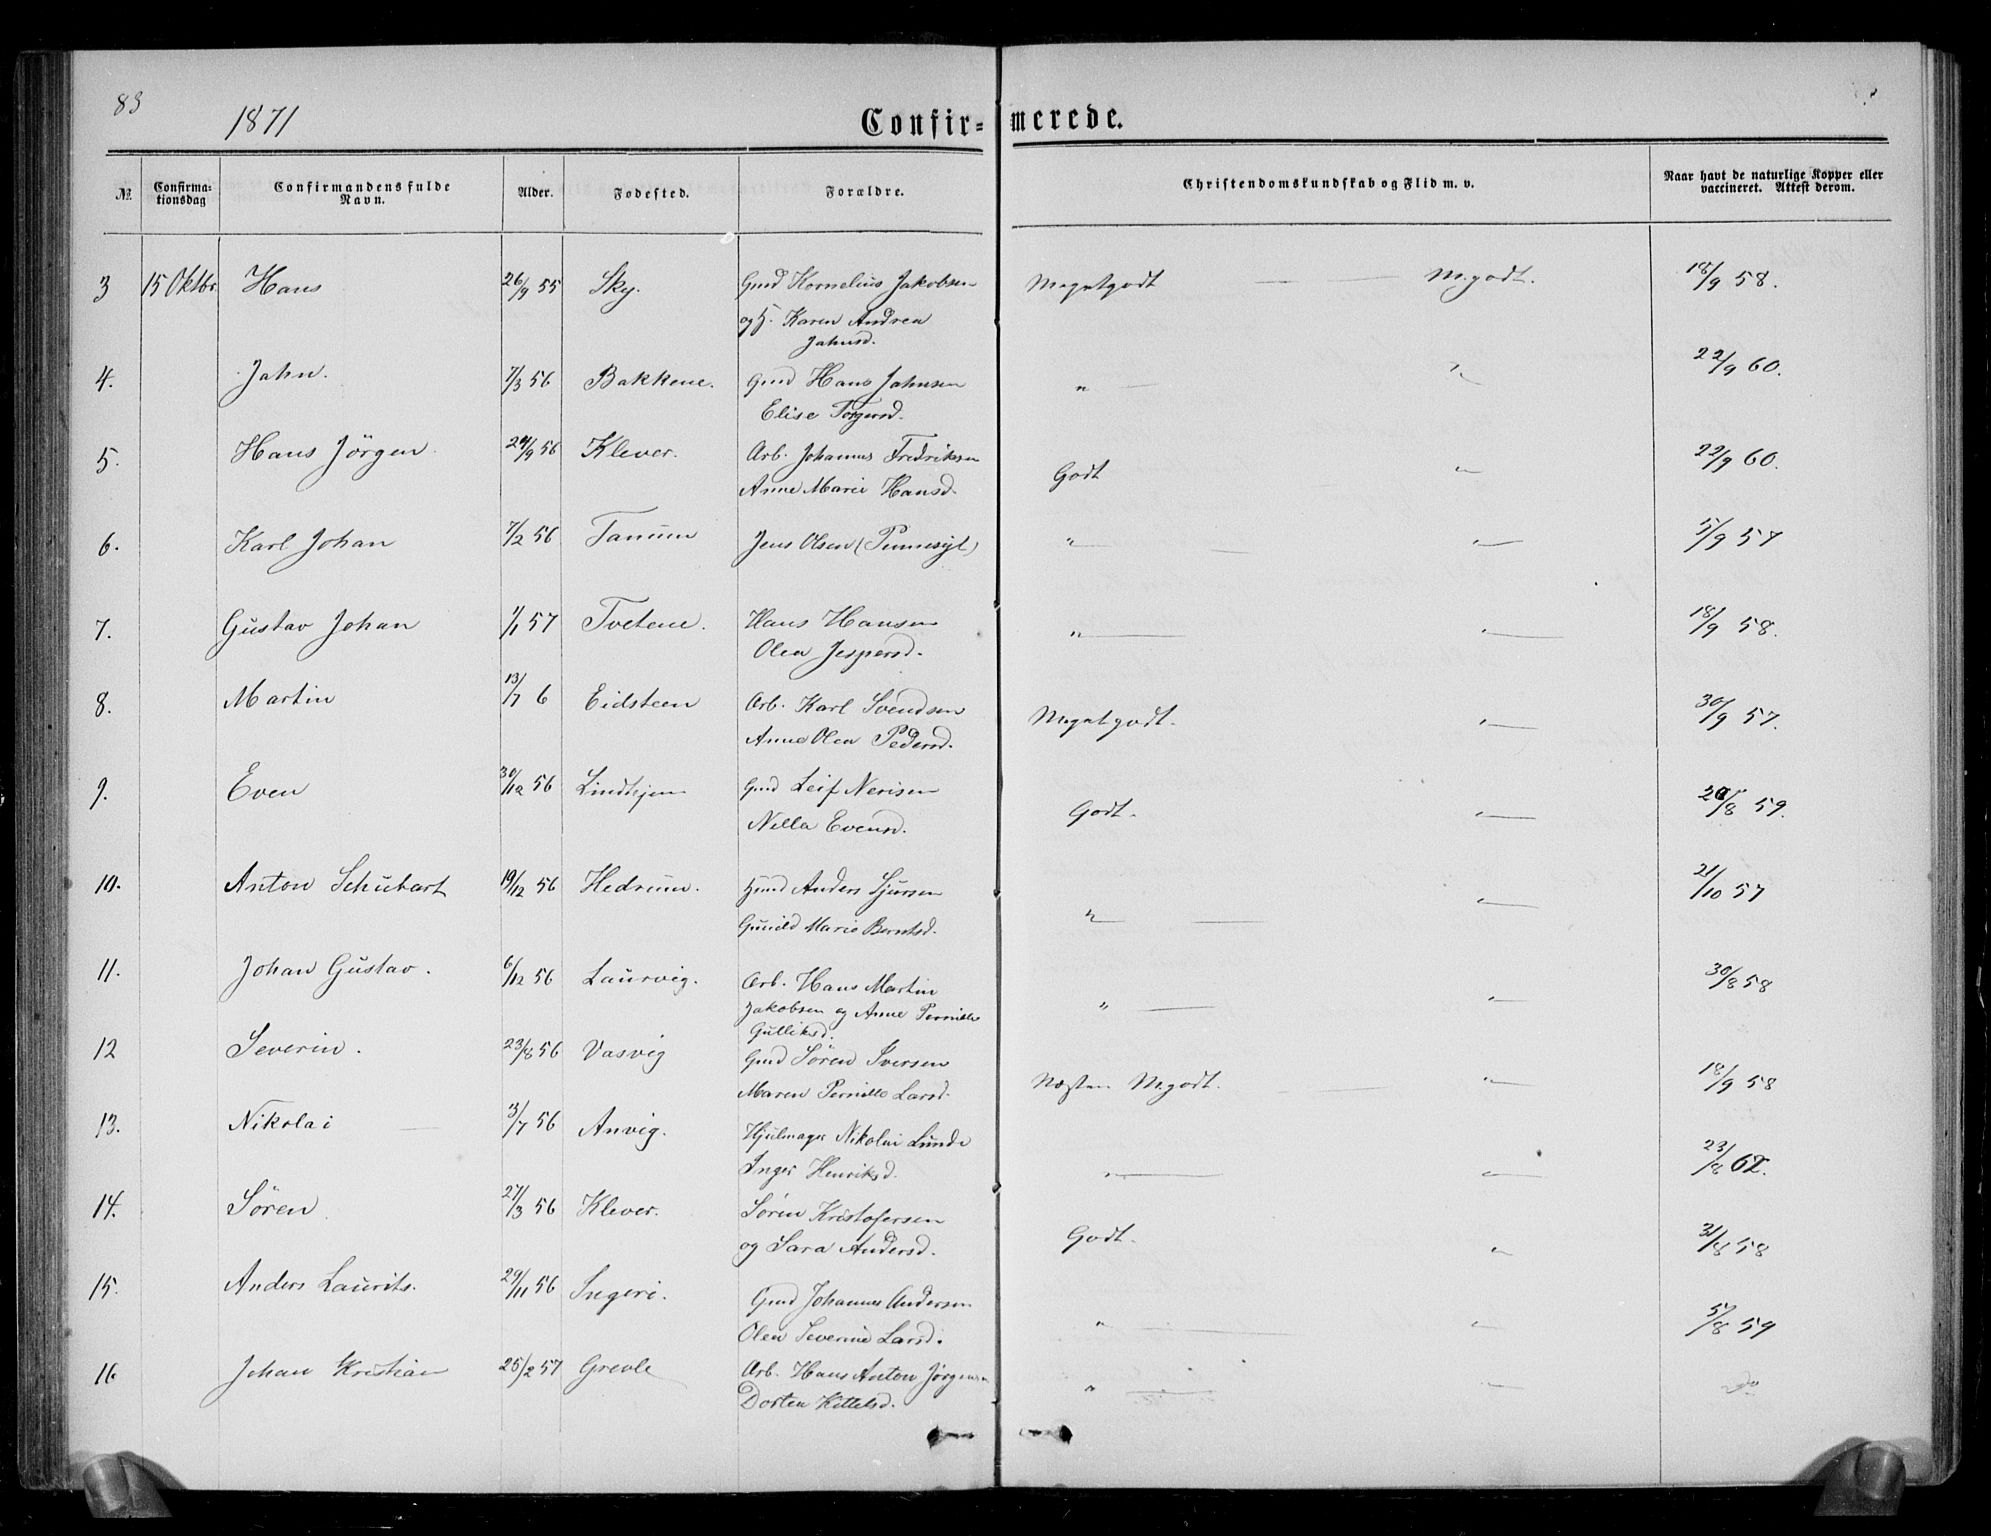 83
1871
Confir-merede.
№ Confirma-tionsdag Confirmandens fulde Navn. Alder. Fødested. Forældre. Christendomskundskab og Flid m. v. Naar havt de naturlige Kopper eller vaccineret. Attest derom.
3 15 Oktbr. Hans 26/9 55 Sky. Gmd Kornelius Jakobsen Megetgodt — M.godt. 18/9 58.
og H. Karen Andrea
Jahnsd.
4. Jahn. 7/3 56 Bakkene. Gmd Hans Jahnsen " — " 22/9 60.
Elise Torgersd.
5. Hans Jörgen. 24/9 56 Klever. Arb. Johannes Fredriksen Godt " 22/9 60.
Anne Marie Hansd.
6. Karl Johan 7/2 56 Tanum Jens Olsen " — " 5/9 57
7. Gustav Johan 1/1 57 Tvetene. Hans Hansen " — " 18/9 58.
Olea Jespersd.
8. Martin 13/7 6 Eidsteen Arb. Karl Svendsen Megetgodt. " 30/9 57.
Anne Olea Pedersd.
9. Even 30/12 56 Lindhjem Gmd Leif Nerisen Godt. " /8 59.
Nella Evensd.
10. Anton Schubart 19/12 56 Hedrum. Anders Sjursen " — " 21/10 57
Gunild Marie Berntsd.
11. Johan Gustav. 6/12 56 Laurvig. Arb. Hans Martin " — " 30/8 58
Jakobsen og Anne Pernille
Gulliksd.
12 Severin. 23/8 56 Vasvig Gmd Sören Iversen Næsten M.godt. — " 18/9 58
Maren Pernille Larsd.
13. Nikolai — 3/7 56 Anvig. Hjulmager Nikolai Lunde " — " 23/8 62.
Inger Henriksd.
14. Sören 27/3 56 Klever. Sören Kristofersen Godt. " 31/8 58
og Sara Andersd.
15. Anders Laurits. 29/11 56 Gmd Johannes Andersen " — " 5/8 59
Olea Severine Larsd.
16 Johan Kristian 25/2 57 Grevle Arb. Hans Anton Jörgensen " — "
Dorten Kittelsd.